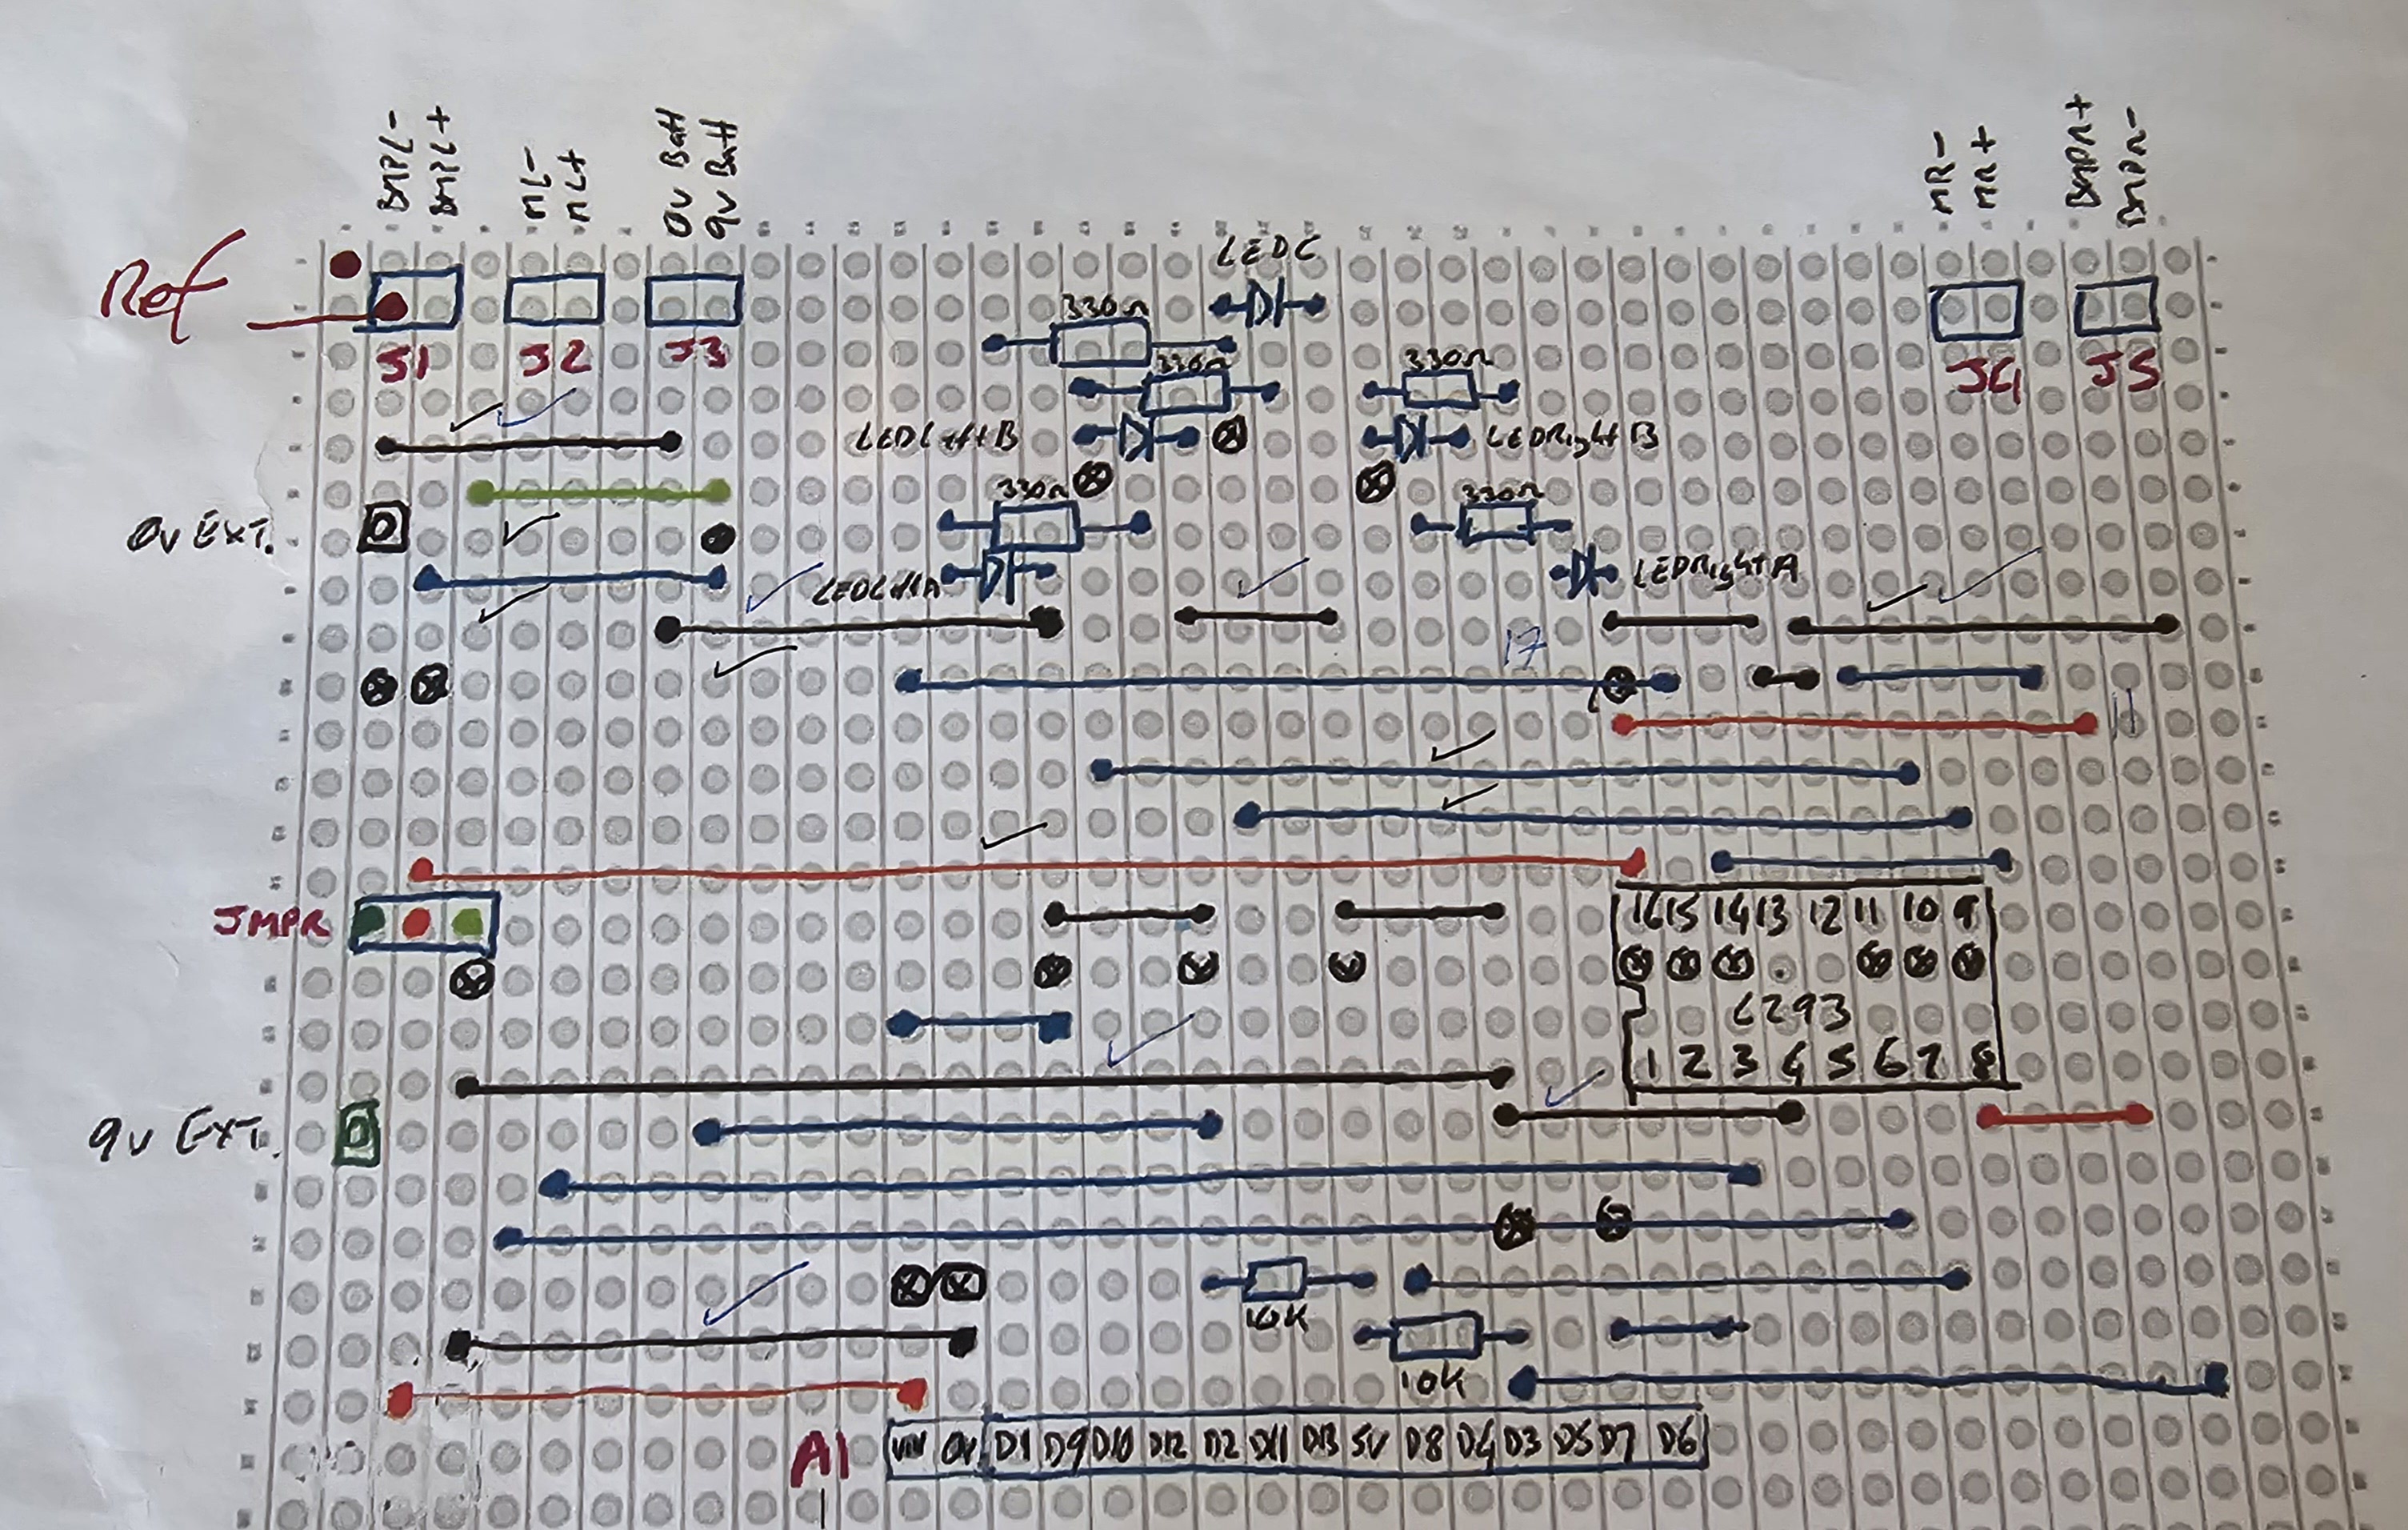 BMPL-
BMPL+
ML-
ML+
0v Batt
9v Batt
MR-
MR+
BMPR+
BMPR-
Ref
LEDC
330Ω
J1
J2
J3
330Ω
330Ω
J4
J5
LEDLeftB
LEDRightB
0v EXT.
330Ω
330Ω
LEDLeftA
LEDRightA
17
11
JMPR
16 15 14 13 12 11 10 9
L293
1 2 3 4 5 6 7 8
9v EXT.
10K
10K
A1
VIN 0V D1 D9 D10 D12 D2 D11 D13 5V D8 D4 D3 D5 D7 D6